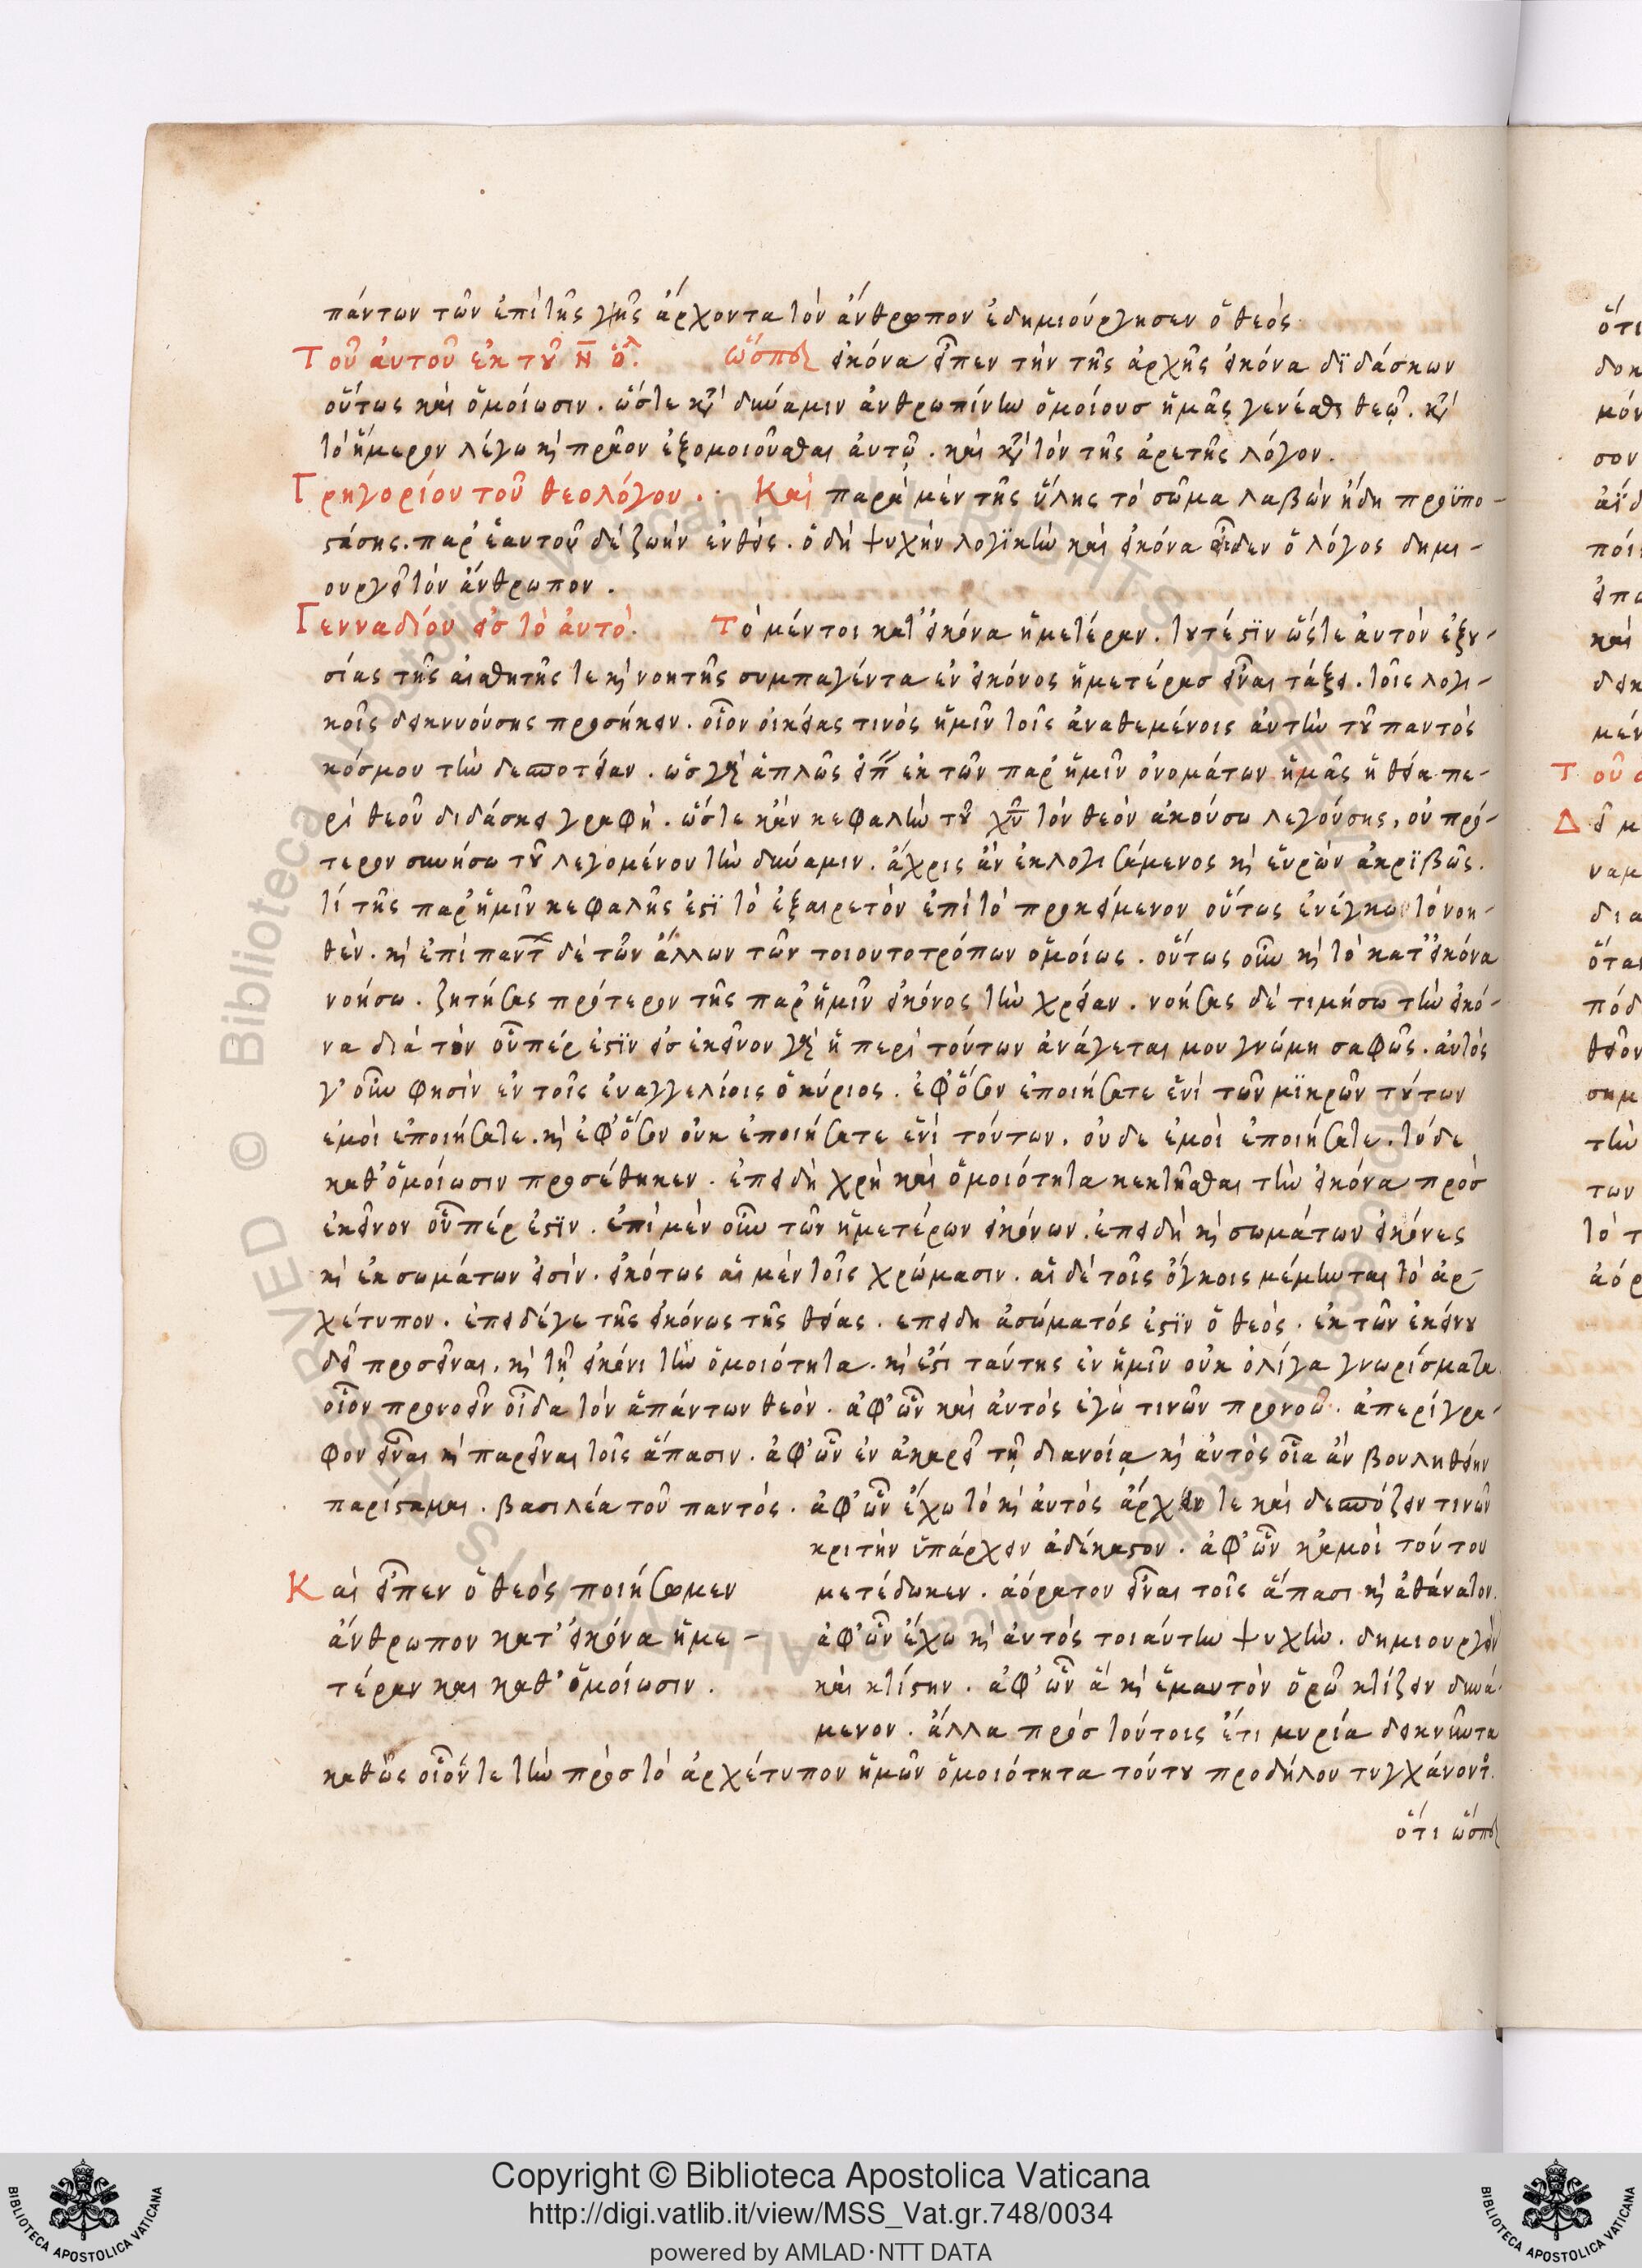 πάντων τῶν ἐπὶ τῆς γῆς ἄρχοντα τὸν ἄνθρωπον ἐδημιούργησεν ὁ θεός
Τοῦ αὐτοῦ ἐκ τοῦ Η̅ ὁ^λ. ὥσπερ εἰκόνα εἶπεν τὴν τῆς ἀρχῆς εἰκόνα διδάσκων
οὕτως καὶ ὁμοίωσιν. ὥστε κατὰ δύναμιν ἀνθρωπίνην ὁμοίους ἡμᾶς γενέσθαι θεῷ. κατὰ
τὸ ἥμερον λέγω καὶ πρᾶον ἐξομοιοῦσθαι αὐτῷ. καὶ κατὰ τὸν τῆς ἀρετῆς λόγον.
Γρηγορίου τοῦ θεολόγου. Καὶ παρὰ μὲν τῆς ὕλης τὸ σῶμα λαβὼν ἤδη προϋπο-
στάσης. παρ' ἑαυτοῦ δὲ ζωὴν ἐνθείς. ὃ δὴ ψυχὴν λογικὴν καὶ εἰκόνα οἶδεν ὁ λόγος δημι-
ουργεῖ τὸν ἄνθρωπον.
Γενναδίου εἰς τὸ αὐτό. Τὸ μέντοι κατ' εἰκόνα ἡμετέραν. τουτέστιν ὥστε αὐτὸν ἐξου-
σίας τῆς αἰσθητῆς τε καὶ νοητῆς συμπαγέντα ἐν εἰκόνος ἡμετέρας εἶναι τάξει. τοῖς λογι-
κοῖς δεικνυούσης προσήκειν. οἷον οἰκείας τινὸς ἡμῖν τοῖς ἀναθεμένοις αὐτὴν τοῦ παντὸς
κόσμου τὴν δεσποτείαν. ὡς γὰρ ἁπλῶς εἰπ ἐκ τῶν παρ' ἡμῖν ὀνομάτων ἡμᾶς ἡ θεία πε-
ρὶ θεοῦ διδάσκει γραφή. ὥστε κἂν κεφαλὴν τοῦ χῦ τὸν θεὸν ἀκούσω λεγούσης, οὐ πρό-
τερον συνήσω τοῦ λεγομένου τὴν δύναμιν. ἄχρις ἂν ἐκλογισάμενος καὶ εὑρὼν ἀκριβῶς.
τί τῆς παρ' ἡμῖν κεφαλῆς ἐστὶ τὸ ἐξαιρετὸν ἐπὶ τὸ προκείμενον οὕτως ἐνέγκω τὸ νοη-
θέν. καὶ ἐπὶ παντ δὲ τῶν ἄλλων τῶν τοιουτοτρόπων ὁμοίως. οὕτως οὖν καὶ τὸ κατ' εἰκόνα
νοήσω. ζητήσας πρότερον τῆς παρ' ἡμῖν εἰκόνος τὴν χρείαν. νοήσας δὲ τιμήσω τὴν εἰκό-
να διὰ τὸν οὗπέρ ἐστιν εἰς ἐκεῖνον γὰρ ἡ περὶ τούτων ἀνάγεται μου γνώμη σαφῶς. αὐτὸς
γ' οὖν φησὶν ἐν τοῖς εὐαγγελίοις ὁ κύριος. ἐφ' ὅσον ἐποιήσατε ἑνὶ τῶν μικρῶν τούτων
ἐμοὶ ἐποιήσατε. καὶ ἐφ' ὅσον οὐκ ἐποιήσατε ἑνὶ τούτων. οὐδε ἐμοὶ ἐποιήσατε. τὸ δε
καθ' ὁμοίωσιν προσέθηκεν. ἐπειδὴ χρὴ καὶ ὁμοιότητα κεκτῆσθαι τὴν εἰκόνα πρὸς
ἐκεῖνον οὗπέρ ἐστιν. ἐπὶ μὲν οὖν τῶν ἡμετέρων εἰκόνων. ἐπειδὴ καὶ σωμάτων εἰκόνες
καὶ ἐκ σωμάτων εἰσίν. εἰκότως αἱ μὲν τοῖς χρώμασιν. αἱ δὲ τοῖς ὄγκοις μέμηνται τὸ ἀρ-
χέτυπον. ἐπεὶ δέ γε τῆς εἰκόνως τῆς θείας. επειδη ἀσώματός ἐστιν ὁ θεός. ἐκ τῶν ἐκείνου
δεῖ προσεῖναι. καὶ τῇ εἰκόνι τὴν ὁμοιότητα. καὶ ἔστι ταύτης ἐν ἡμῖν οὐκ ὀλίγα γνωρίσματα.
οἷον προνοεῖν οἶδα τὸν ἁπάντων θεόν. ἀφ' ὧν καὶ αὐτὸς ἐγώ τινῶν προνοῶ. ἀπερίγρα-
φον εἶναι καὶ παρεῖναι τοῖς ἅπασιν. ἀφ' ὧν ἐν ἀκαρεῖ τῇ διανοίᾳ καὶ αὐτὸς οἷα ἂν βουληθείην
παρίσταμαι. βασιλέα τοῦ παντός. ἀφ' ὧν ἔχω τὸ καὶ αὐτὸς ἄρχειν τε καὶ δεσπόζειν τινῶν
κριτὴν ὑπάρχειν ἀδέκαστον. ἀφ' ὧν κἀμοὶ τούτου
Και εἶπεν ὁ θεός ποιήσωμεν μετέδωκεν. ἀόρατον εἶναι τοῖς ἅπασι καὶ ἀθάνατον.
ἄνθρωπον κατ' εἰκόνα ἡμε- ἀφ' ὧν ἔχω καὶ αὐτὸς τοιαύτην ψυχήν. δημιουργὸν
τέραν και καθ' ὁμοίωσιν. καὶ κτίστην. ἀφ' ὧν ἃ καὶ ἐμαυτὸν ὁρῶ κτίζειν δυνά-
μενον. ἄλλα πρὸς τούτοις ἔτι μυρία δεικνῦντα
καθὼς οἷόν τε τὴν πρὸς τὸ ἀρχέτυπον ἡμῶν ὁμοιότητα τούτου προδήλου τυγχάνοντ.
ὅτι ὥσπερ
Copyright © Biblioteca Apostolica Vaticana
http://digi.vatlib.it/view/MSS_Vat.gr.748/0034
powered by AMLAD·NTT DATA